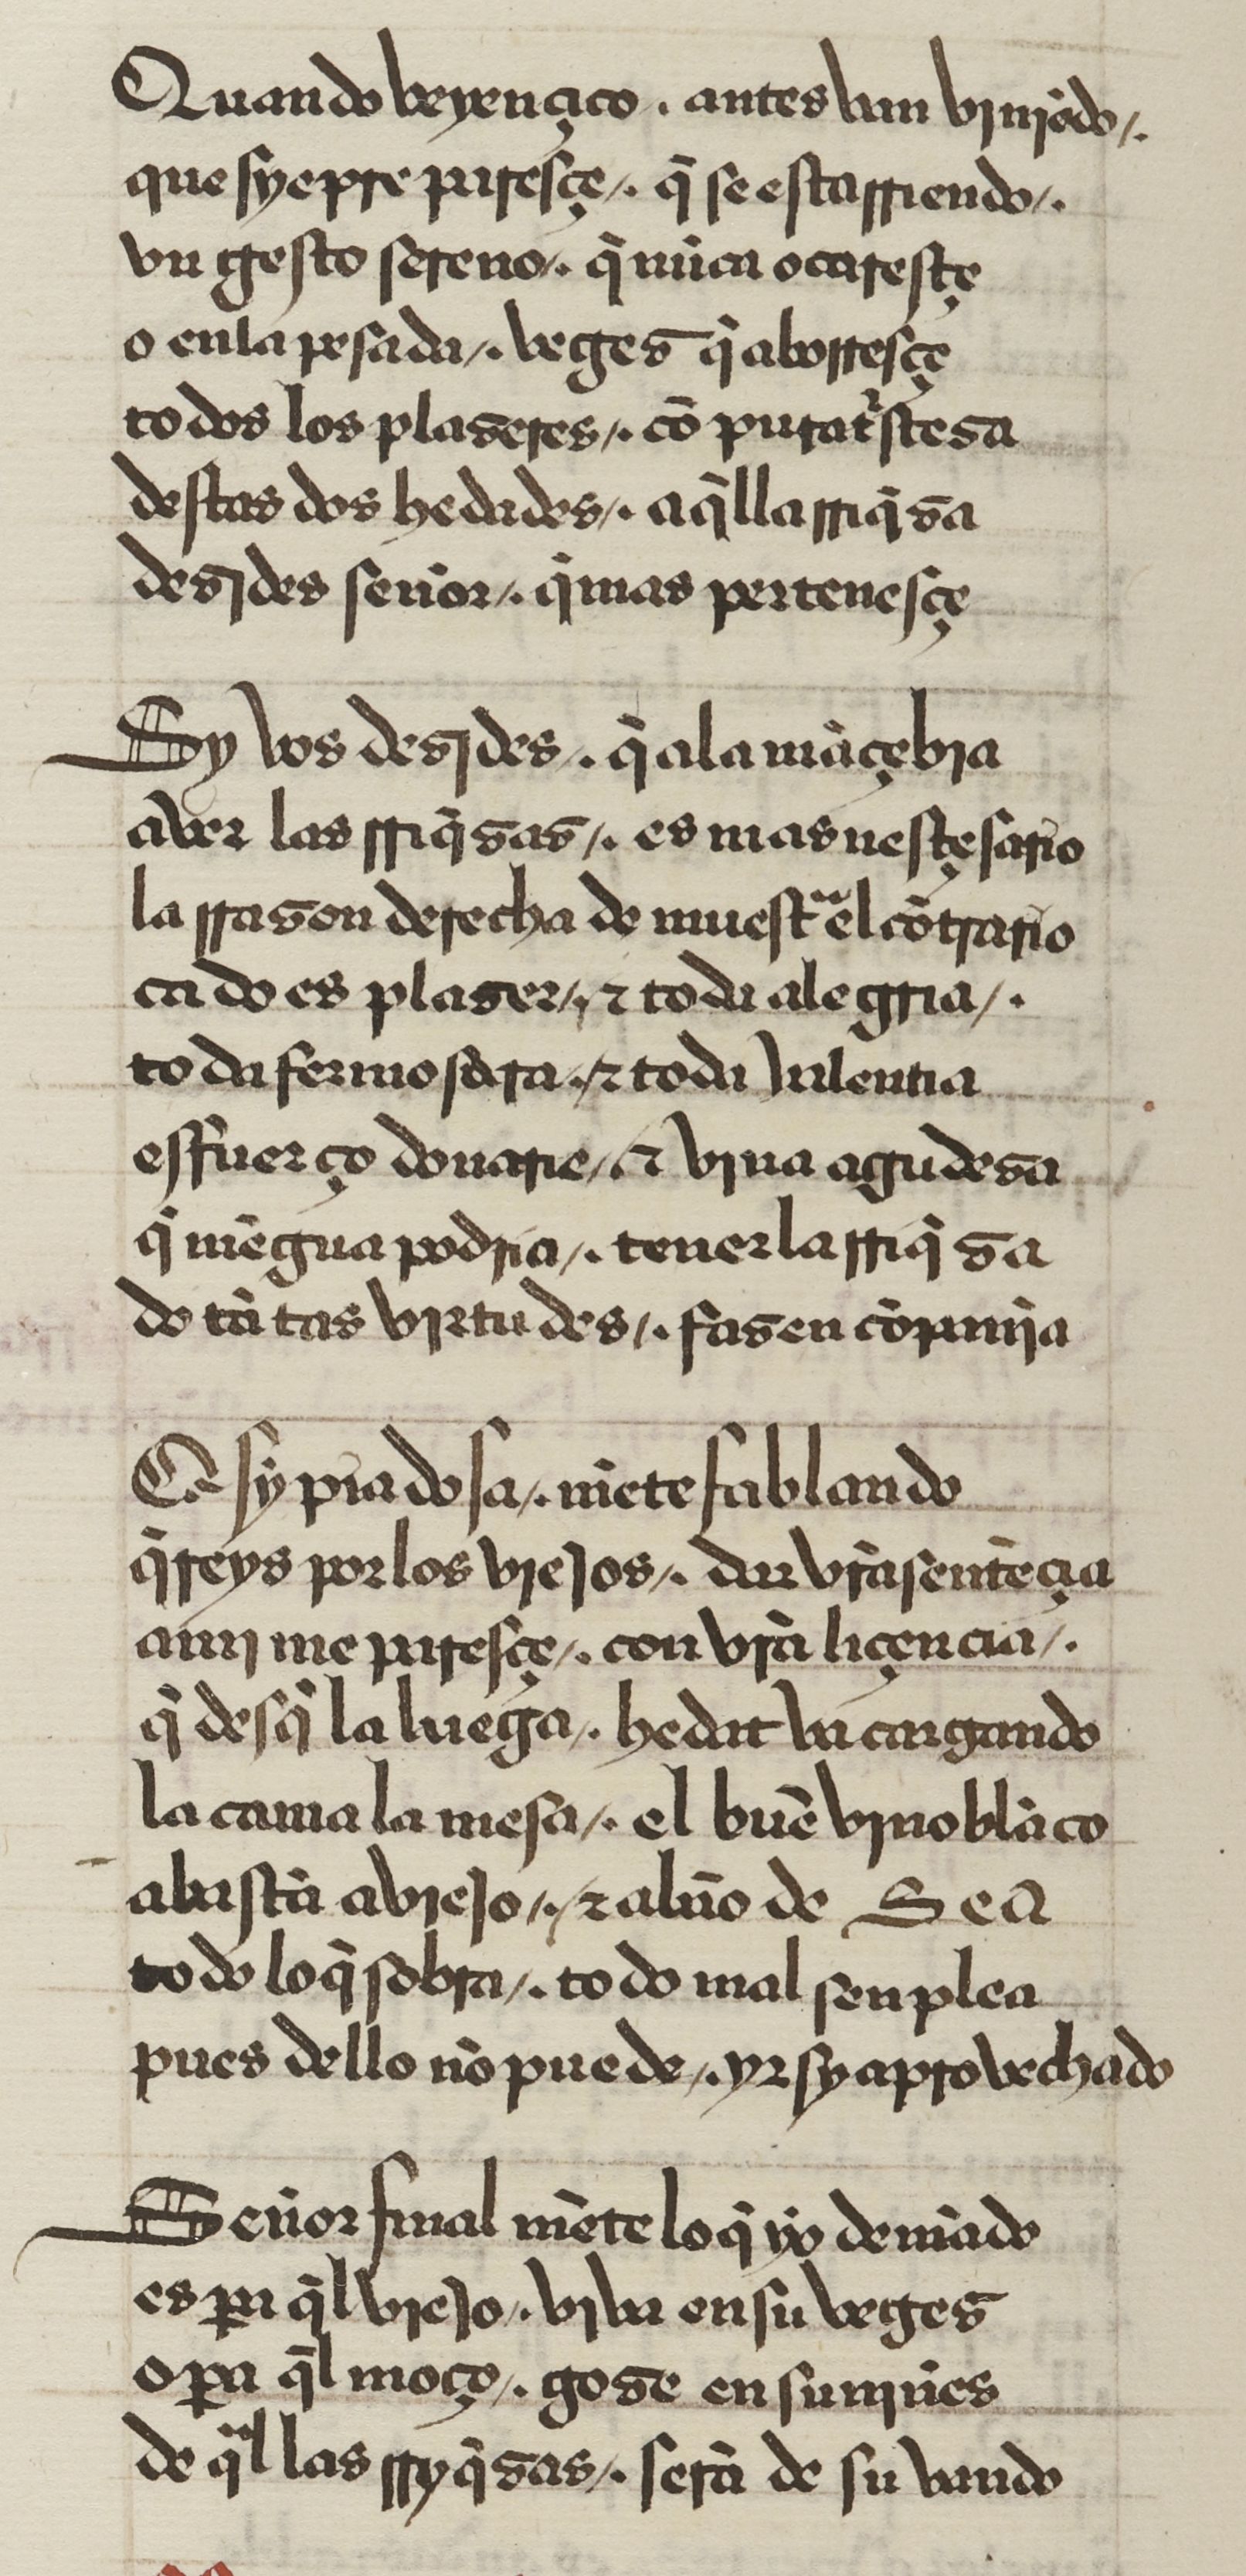 Quando veyençico . antes van viniēdo /.
que syepre paresçe /. q̄ se esta rriendo /.
vn gesto sereno /. q̄ nūca o caresçe
o en la pesada /. vegez q̄ aborresçe
todos los plazeres /. cō pura tͥsteza
destas dos hedades /. aq̄lla rriq̄za
dezides señor /. q̄ mas pertenesçe
Sy vos dezides /. q̄ ala māçebia
aver las rriq̄zas /. es mas nesçesario
la rrazon derecha de muestᵃ el cōtrario
ca do es plazer /. ⁊ toda alegria /.
toda fermosura /. ⁊ toda valentia
esfuerço donarie /. ⁊ viua agudeza
q̄ mēgua podria /. tener la rriq̄za
do tātas virtudes /. fazen cōpañia
E sy piadosa /. mēte fablando
q̄reys por los viejos /. dar vr̄a sentēçia
a mi me paresçe /. con vr̄a liçencia /.
q̄ desq̄ la luega /. hedat va cargando
la cama la mesa /. el buē vino blāco
abastā a viejo /. ⁊ alūo de Sea
todo lo q̄ sobra /. todo mal senplea
pues dello nō puede /. yr sy aprovechado
Señor final mēte lo q̄ yo demādo
es pa q̄l viejo /. viva en su vegez
o pa q̄l moço /. goze en su niñes
de q̄l las rryq̄zas /. serā de su vando